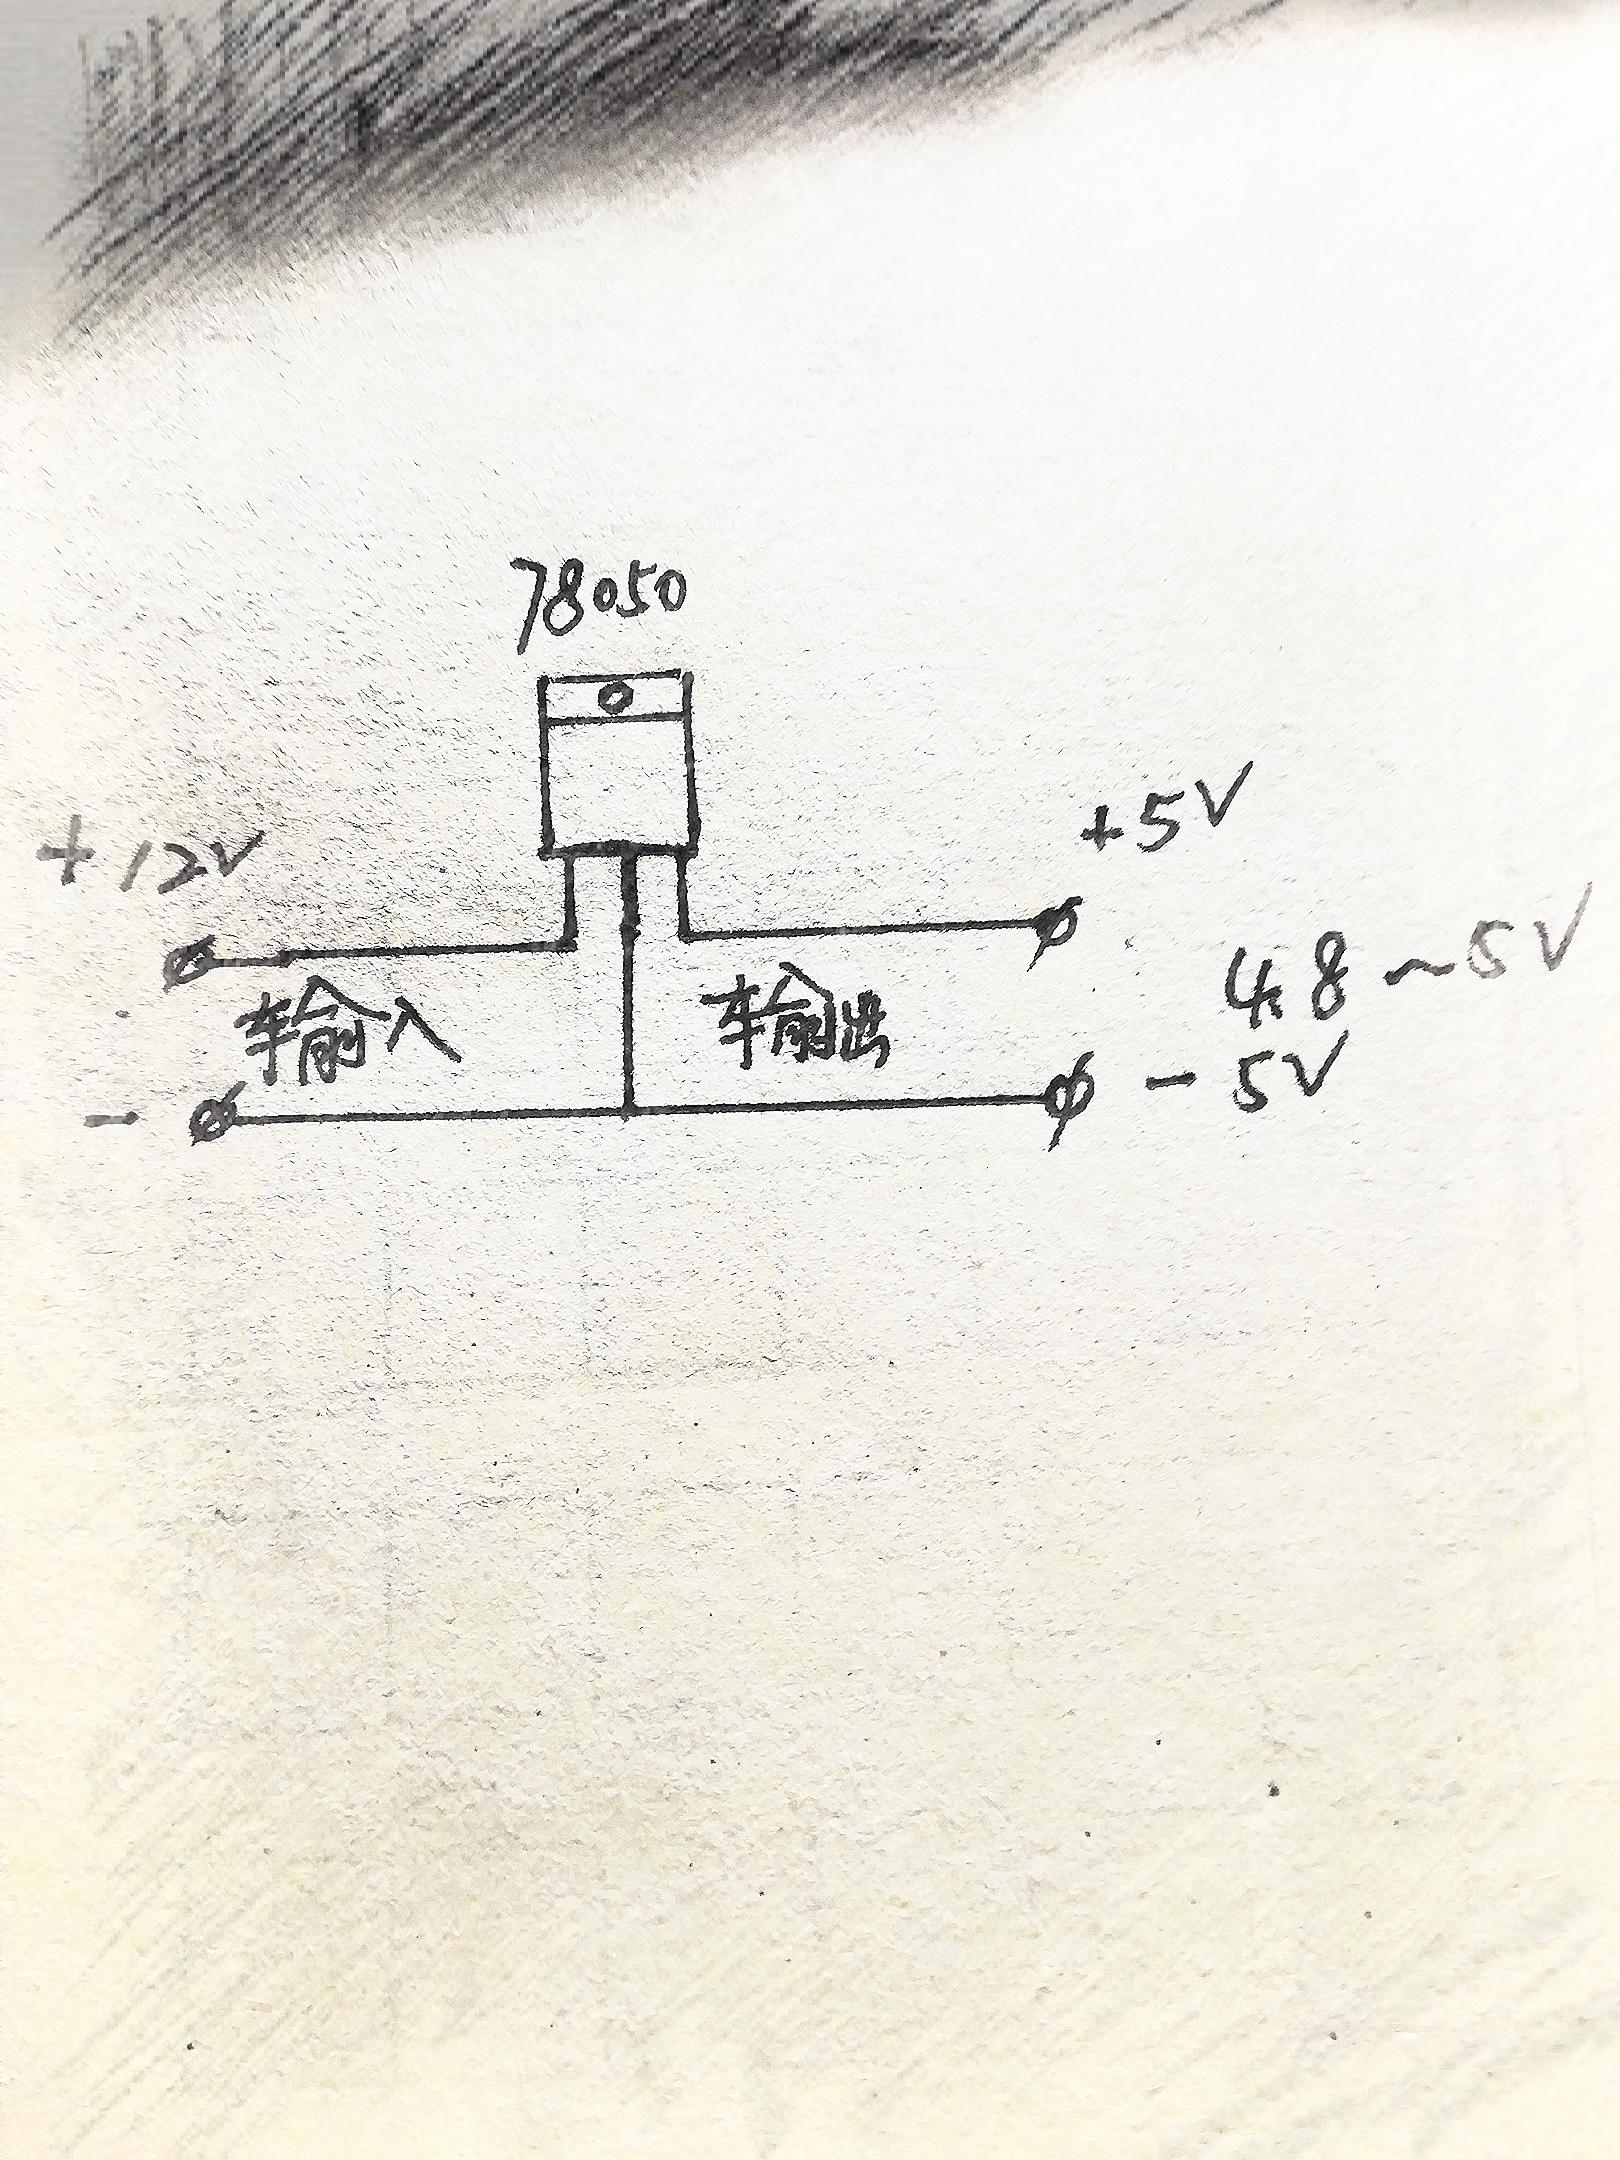 78050
+12V
+5V
4.8~5V
车输入
车输出
-
-5V